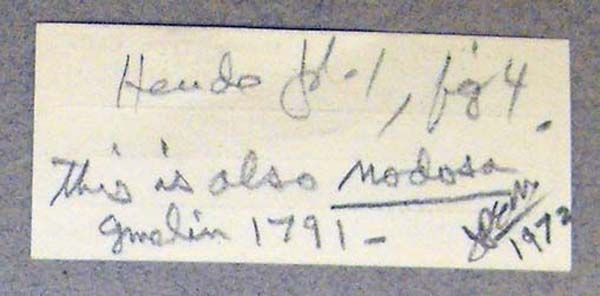 pl. 1, fig 4.
This is also nodosa
Gmelin 1791 –
1972